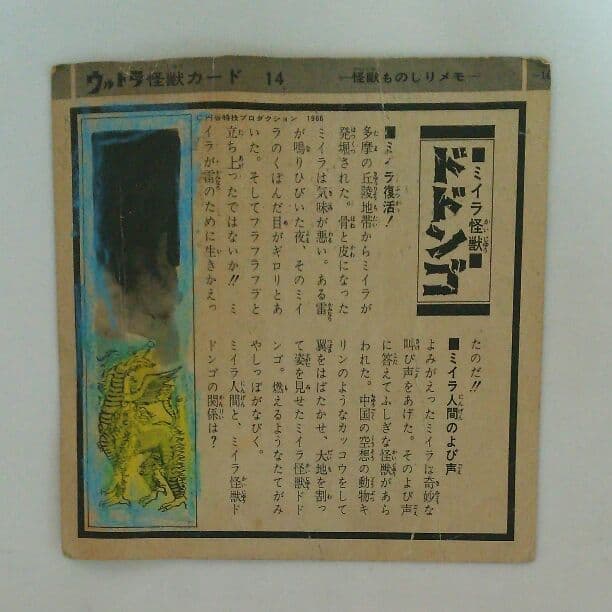 ウルトラ怪獣カード 14 ―怪獣ものしりメモ― ―14
©円谷特技プロダクション 1966
■ミイラ怪獣■
ドドンゴ
■ミイラ復活!
多摩の丘陵地帯からミイラが
発堀された。骨と皮になった
ミイラは気味が悪い。ある雷
が鳴りひびいた夜、そのミイ
ラのくぼんだ目がギロリとあ
いた。そしてフラフラフラと
立ち上ったではないか!! ミ
イラが雷のために生きかえっ
たのだ!!
■ミイラ人間のよび声
よみがえったミイラは奇妙な
叫び声をあげた。そのよび声
に答えてふしぎな怪獣があら
われた。中国の空想の動物キ
リンのようなカッコウをして
翼をはばたかせ、大地を割っ
て姿を見せたミイラ怪獣ドド
ンゴ。燃えるようなたてがみ
やしっぽがなびく。
ミイラ人間と、ミイラ怪獣ド
ドンゴの関係は?